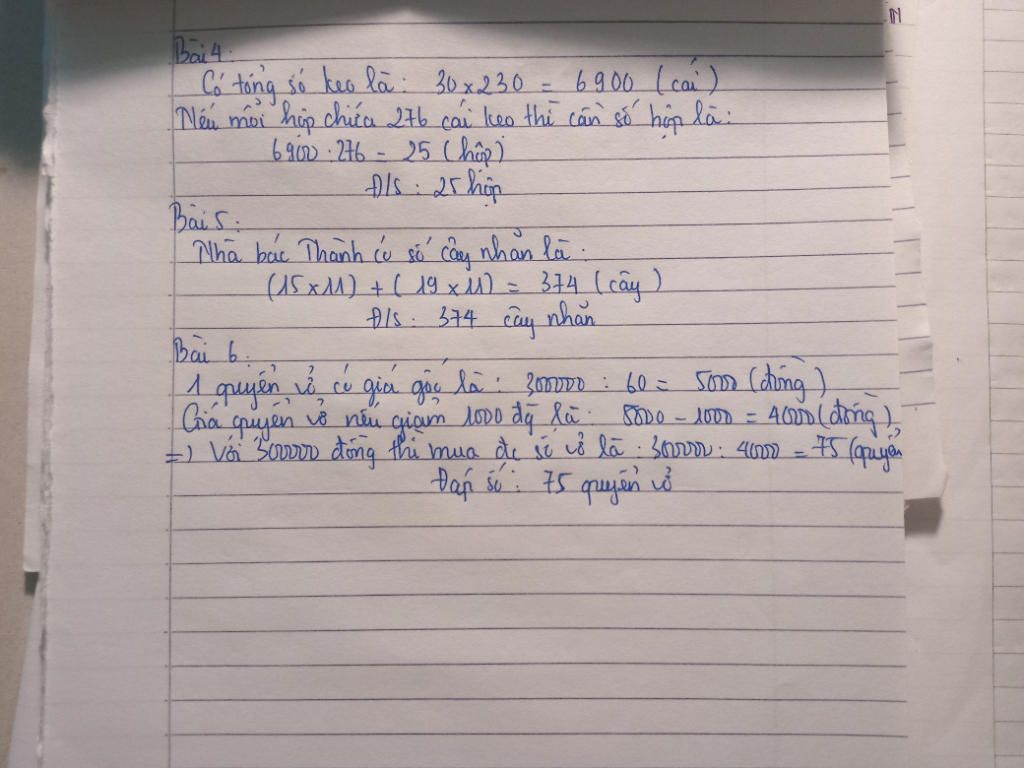 Bài 4:
Có tổng số kẹo là: 30 x 230 = 6900 (cái)
Nếu mỗi hộp chứa 276 cái kẹo thì cần số hộp là:
6900 : 276 = 25 (hộp)
Đ/S : 25 hộp
Bài 5:
Nhà bác Thành có số cây nhãn là:
(15 x 11) + (19 x 11) = 374 (cây)
Đ/S : 374 cây nhãn
Bài 6:
1 quyển vở có giá gốc là : 300000 : 60 = 5000 (đồng)
Giá quyển vở nếu giảm 1000 đg là: 5000 - 1000 = 4000 (đồng)
=) Với 300000 đồng thì mua đc số vở là : 300000 : 4000 = 75 (quyển
Đáp số : 75 quyển vở